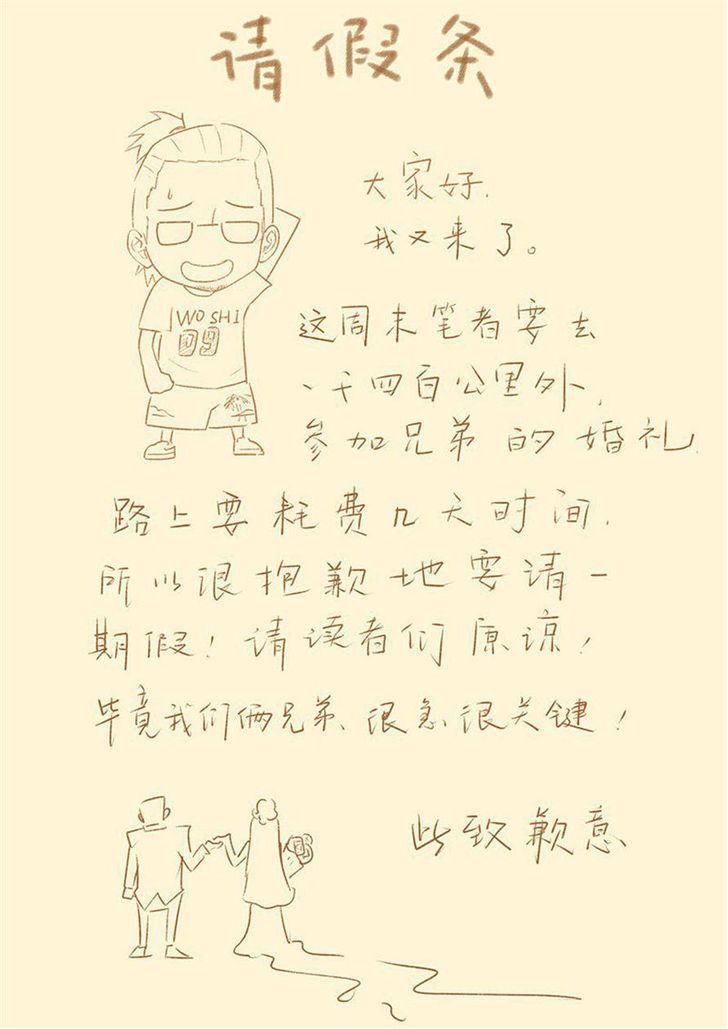 请假条
大家好,
我又来了。
WO SHI
09
这周末笔者要去
一千四百公里外,
参加兄弟的婚礼
路上要耗费几天时间,
所以很抱歉地要请一
期假!请读者们原谅!
毕竟我们俩兄弟、很急很关键!
此致歉意